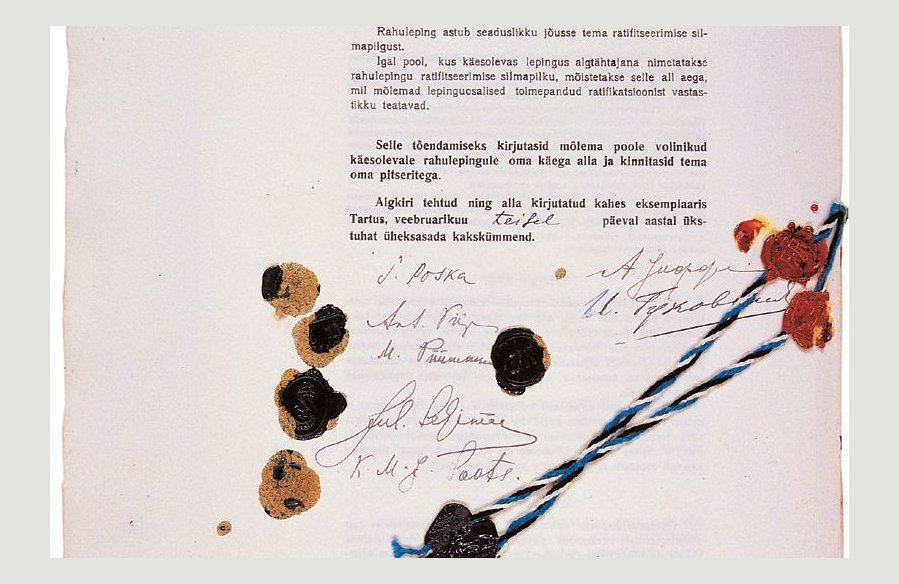 Rahuleping astub seaduslikku jõusse tema ratifitseerimise sil-
mapilgust.
Igal pool, kus käesolevas lepingus algtähtajana nimetatakse
rahulepingu ratifitseerimise silmapilku, mõistetakse selle all aega,
mil mõlemad lepinguosalised toimepandud ratifikatsioonist vastas-
tikku teatavad.
Selle tõendamiseks kirjutasid mõlema poole volinikud
käesolevale rahulepingule oma käega alla ja kinnitasid tema
oma pitseritega.
Algkiri tehtud ning alla kirjutatud kahes eksemplaaris
Tartus, veebruarikuu teisel päeval aastal üks-
tuhat üheksasada kakskümmend.
J. Poska
А. Иоффе
Ant. Piip
М. Püümann
Jul. Seljamaa